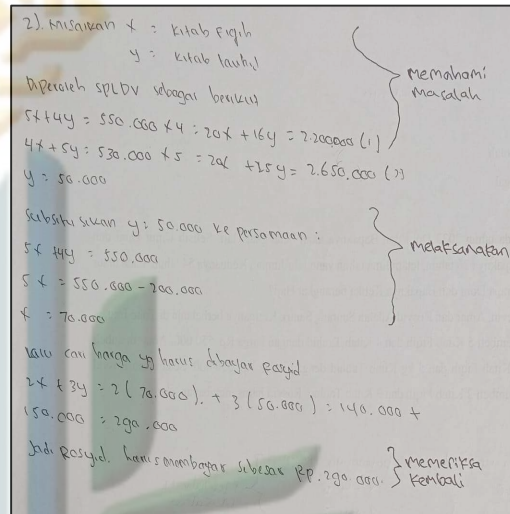 2). Misalkan x : kitab Fiqih
y : kitab tauhid
memahami
masalah
Diperoleh SPLDV sebagai berikut
5x+4y = 550.000 x4 : 20x + 16y = 2.200.000 (1)
4x+5y : 530.000 x5 = 20x +25y = 2.650.000 (2)
y = 50.000
Substitusikan y : 50.000 ke persamaan :
melaksanakan
5x +4y = 550.000
5x = 550.000 - 200.000
x = 70.000
Lalu cari harga yg harus dibayar Rasyid
2x + 3y = 2 (70.000). + 3 (50.000) = 140.000 +
150.000 = 290.000
Jadi Rosyid. harus membayar sebesar Rp. 290.000.
memeriksa
kembali